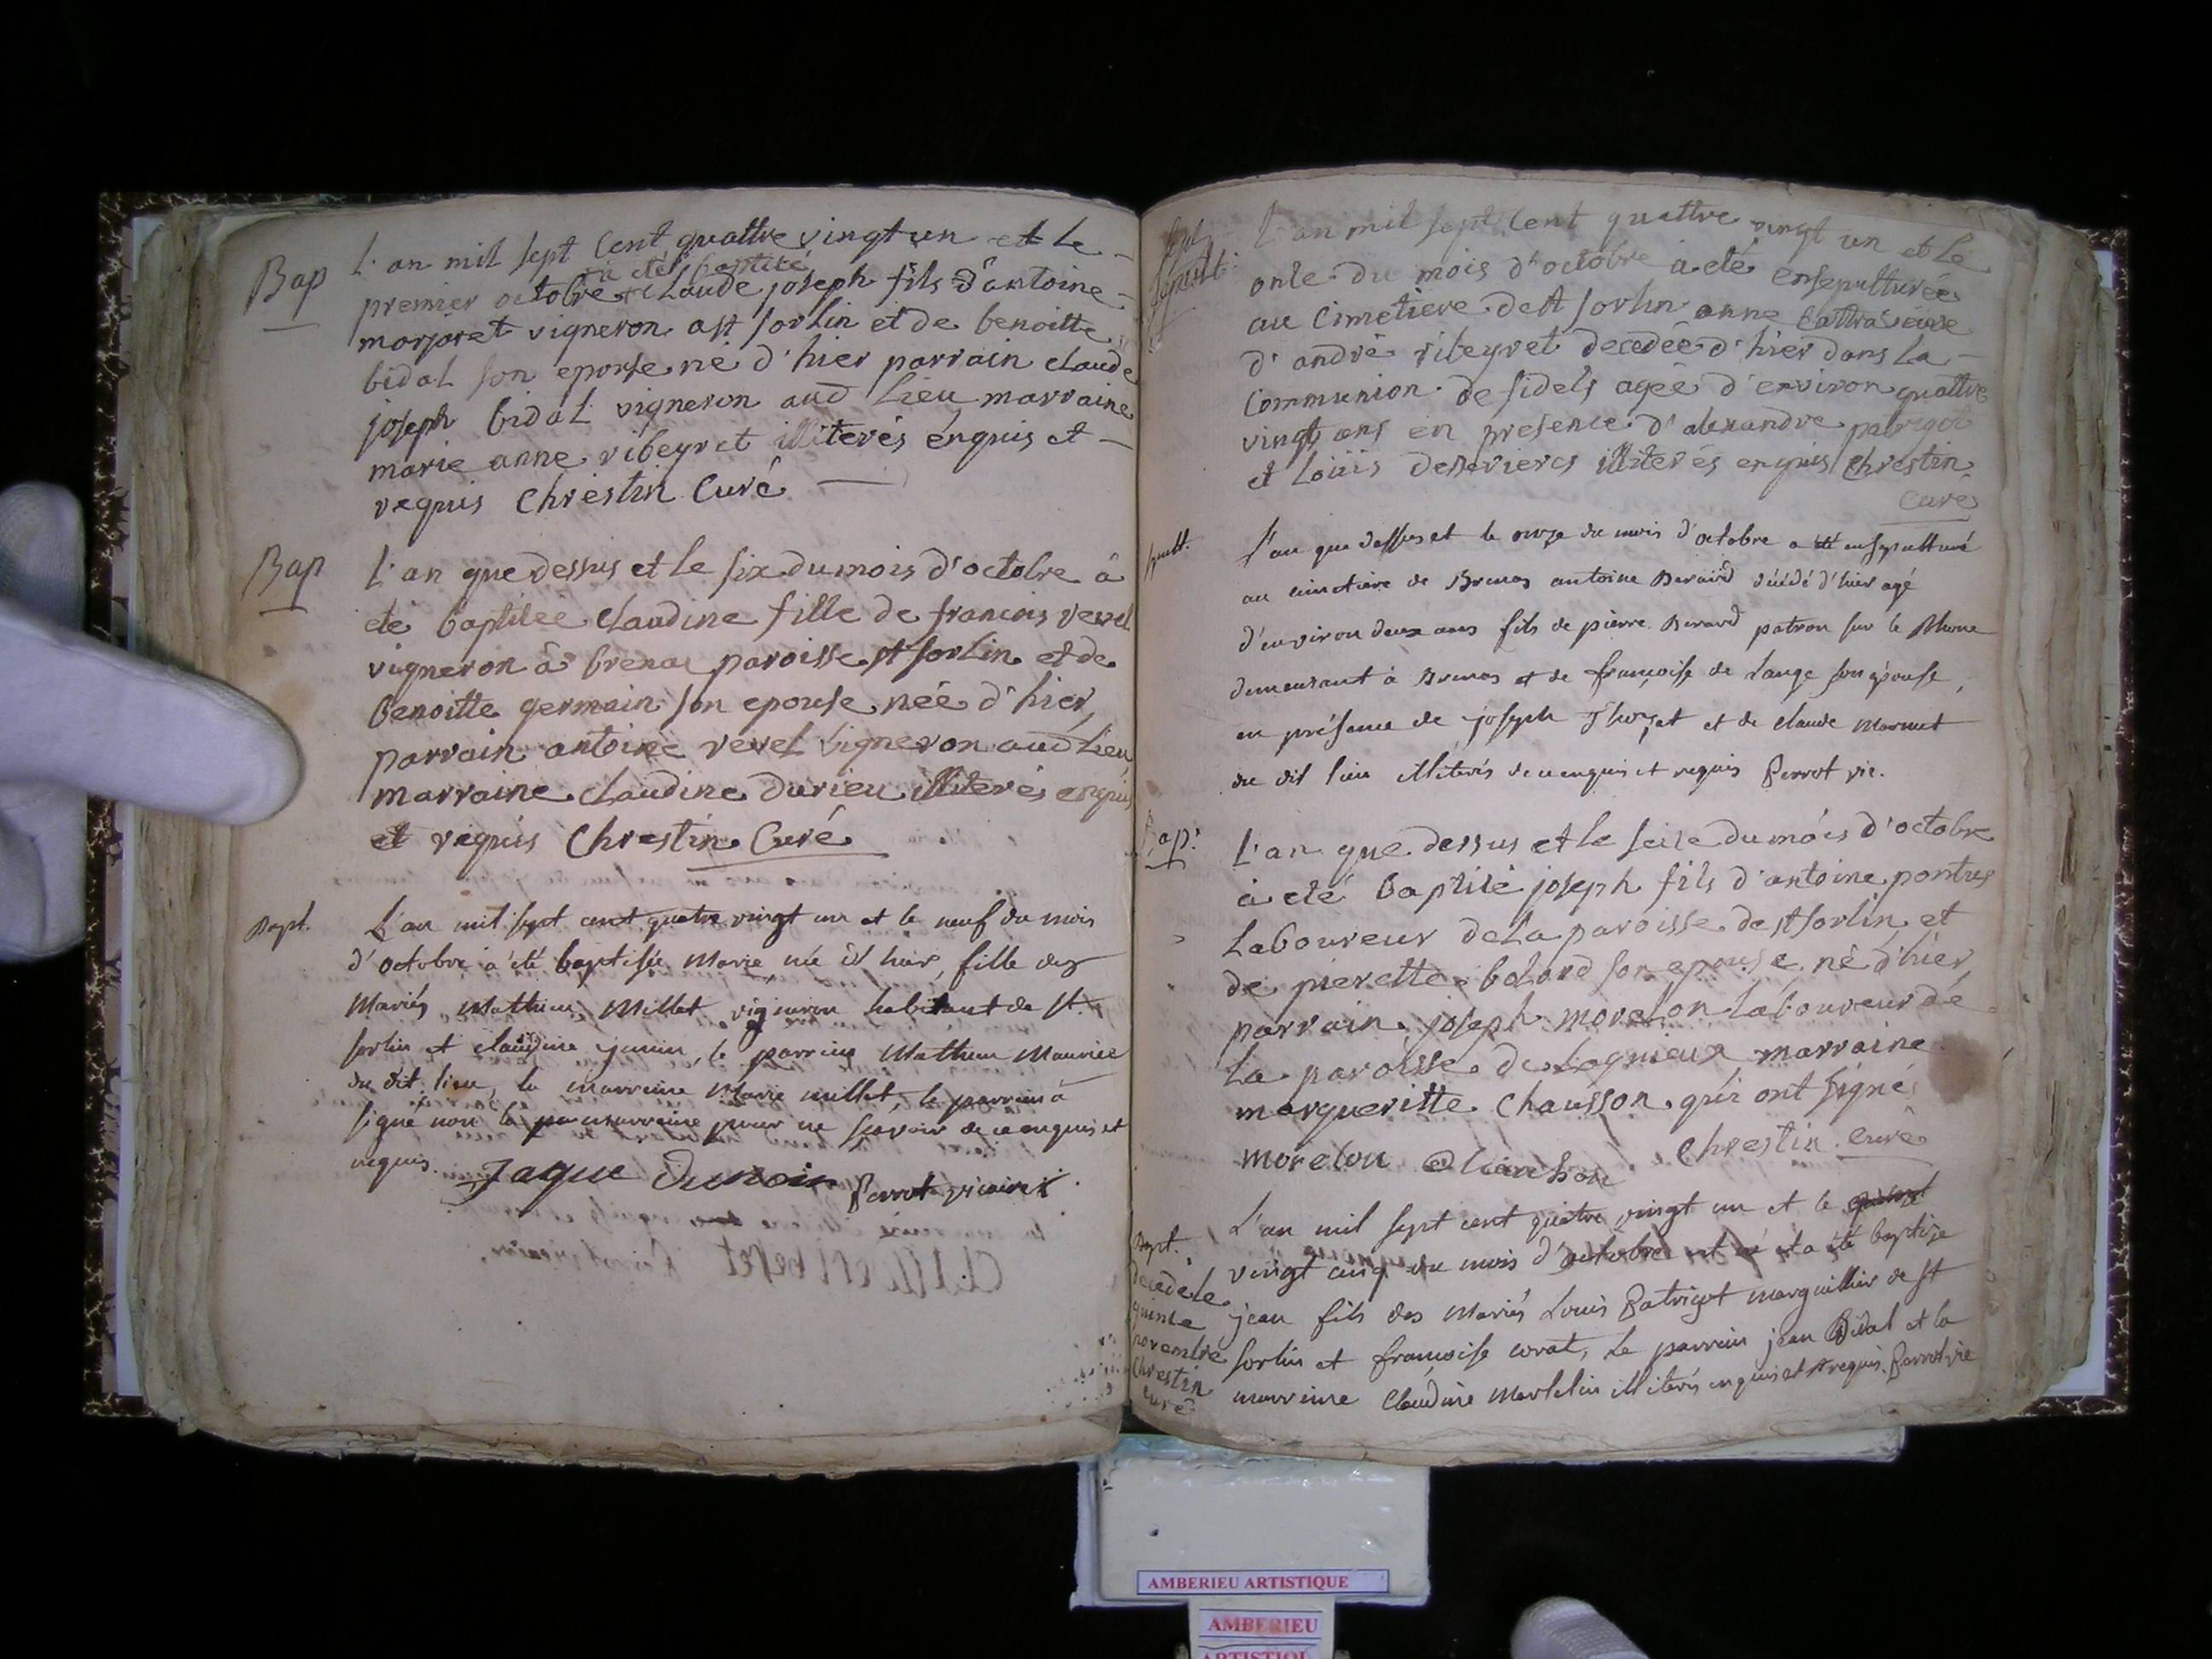 Bap
L'an mil sept Cent quattre vingt un et le
à eté baptisé
premier octobre + claude joseph fils d'antoine
marjaret vigneron a st sorlin et de benoitte
bidal son epouse né d'hier parrain claude
joseph bidal vigneron aud Lieu marraine
marie anne ribeyret illiterés énquis et
requis Chrestin Curé
Bap
L'an que dessus et le six du mois d'octobre à
eté baptisée claudine fille de francois revel
vigneron à brenas paroisse st sorlin et de
Benoitte germain son epouse née d'hier,
parrain antoine revel vigneron aud Lieu
marraine claudine durieu illiterés enquis
et requis Chrestin Curé
Bapt.
L'an mil sept cent quatre vingt un et le neuf du mois
d'octobre à été baptisée Marie née d'hier, fille des
Mariés Mathieu Millet vigneron habitant de St.
sorlin et claudine le parrain Mathieu Maurice
du dit lieu, la marreine Marie millet, le parrain à
signé non la marreine pour ne scavoir de ce enquis et
requis. Jaque Dunoir Perrot vicaire
Sepult:
L'an mil sept Cent quattre vingt un et le
onse du mois d'octobre à eté ensepulturée
au Cimetiere de st sorlin anne veuve
d'andré ribeyret decedée d'hier dans la
Communion de fidels ageé d'environ quattre
vingt ans en presence d'alexandre patrigot
et Loüis illiterés enquis Chrestin
Curé
Sepult.
L'an que dessus et le onze du mois d'octobre a été ensepulturé
au cimetiere de Brenas antoine Berard décédé d'hier agé
d'environ deux ans fils de pierre Berard patron sur le Rhone
demeurant à Brenas et de françoise de Lange son épouse,
en présence de joseph Thozet et de claude Marmet
du dit lieu illiterés de ce enquis et requis Perrot vic.
Bap:
L'an que dessus et le seise du mois d'octobre
à eté Baptisé joseph fils d'antoine pontus
Laboureur de La paroisse de st sorlin et
de pierette bolard son epouse né d'hier,
parrain joseph morelon laboureur de
La paroisse de Lagnieux marraine
margueritte Chausson qui ont signé
morelon Chausson Chrestin curé
Bapt.
decedé le
quinse
novembre
Chrestin
curé
L'an mil sept cent quatre vingt un et le
vingt cinq du mois d'octobre est né et a été baptisé
jean fils des Mariés Louis Patrigot marguillier de St
sorlin et françoise corat, Le parrain jean Bidal et la
marreine Claudine Martelin illiterés enquis et requis. Perrot vic
AMBERIEU ARTISTIQUE
AMBERIEU
ARTISTIQU